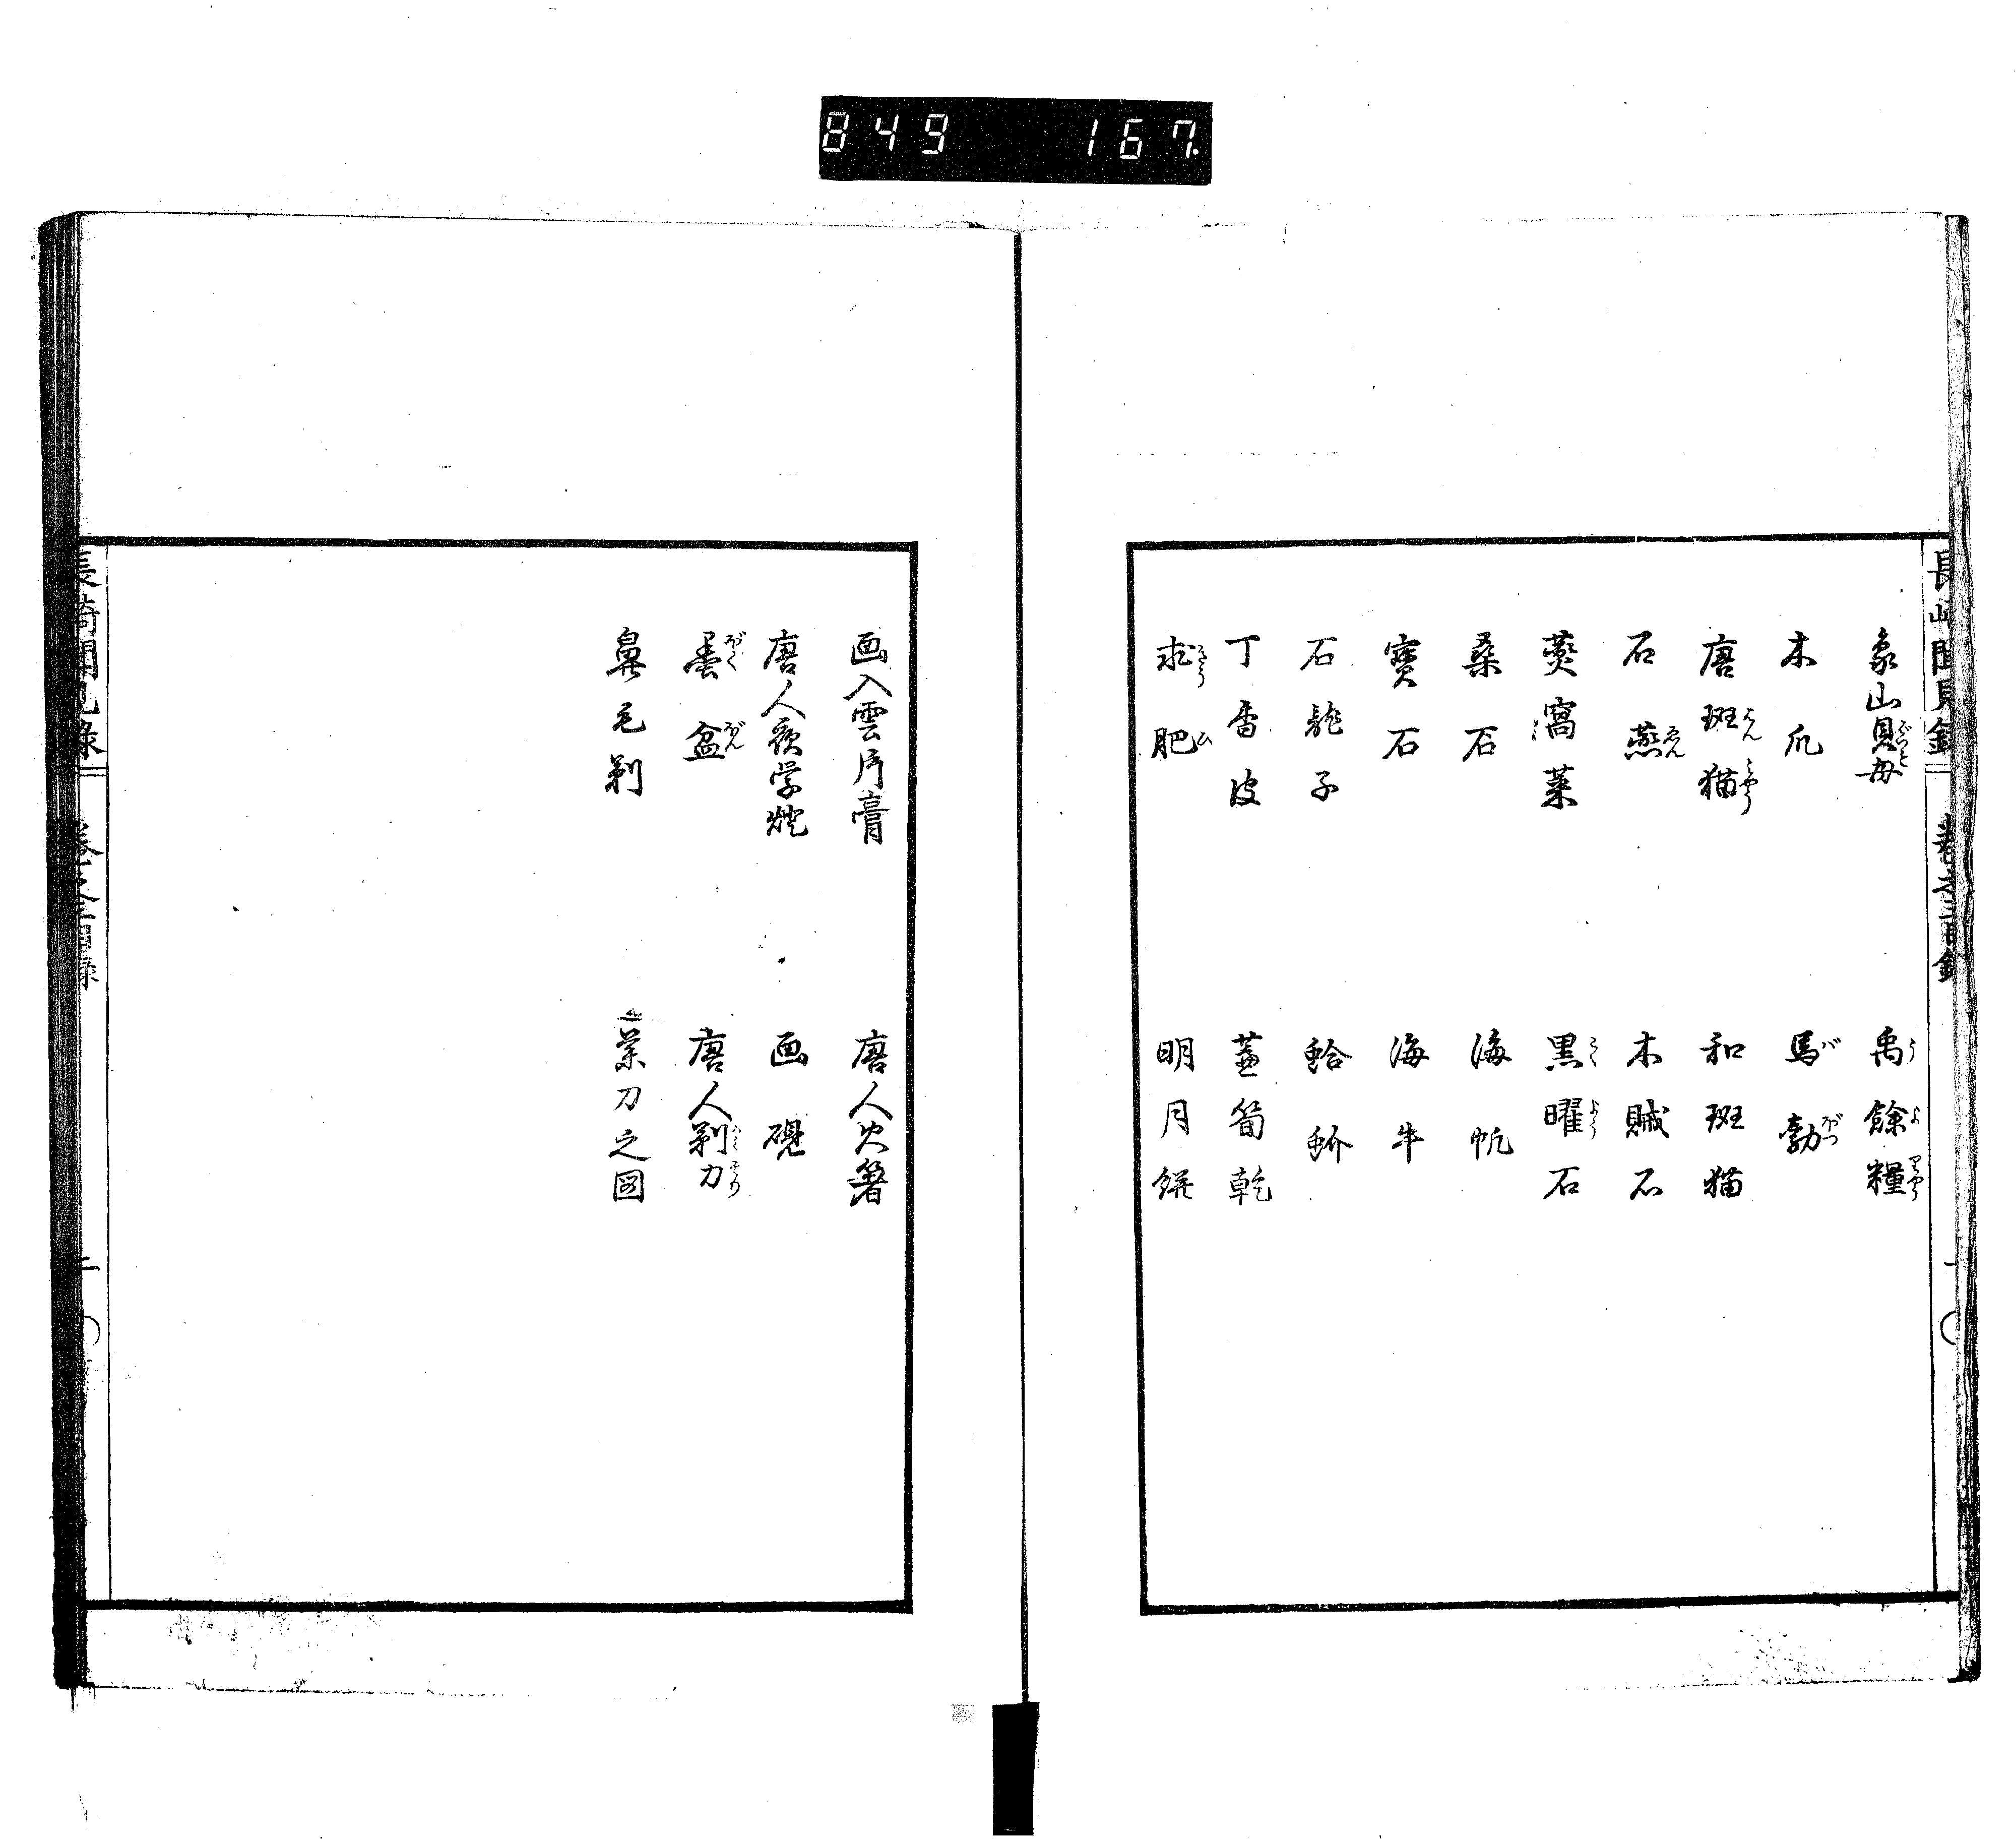 849 167.
長崎聞見録 巻之三目録
象山貝母 禹餘糧
木瓜 馬勃
唐斑猫 和斑猫
石燕 木賊石
燕窩菜 黒曜石
桑石 海帆
寶石 海牛
石龍子 蛤蚧
丁香皮 薑筍乾
求肥 明月餅
画入雲片膏 唐人火箸
唐人額学煙 画硯
墨盆 唐人剃刀
鼻毛剃 菜刀之図
長崎聞見録 巻之三目録 二